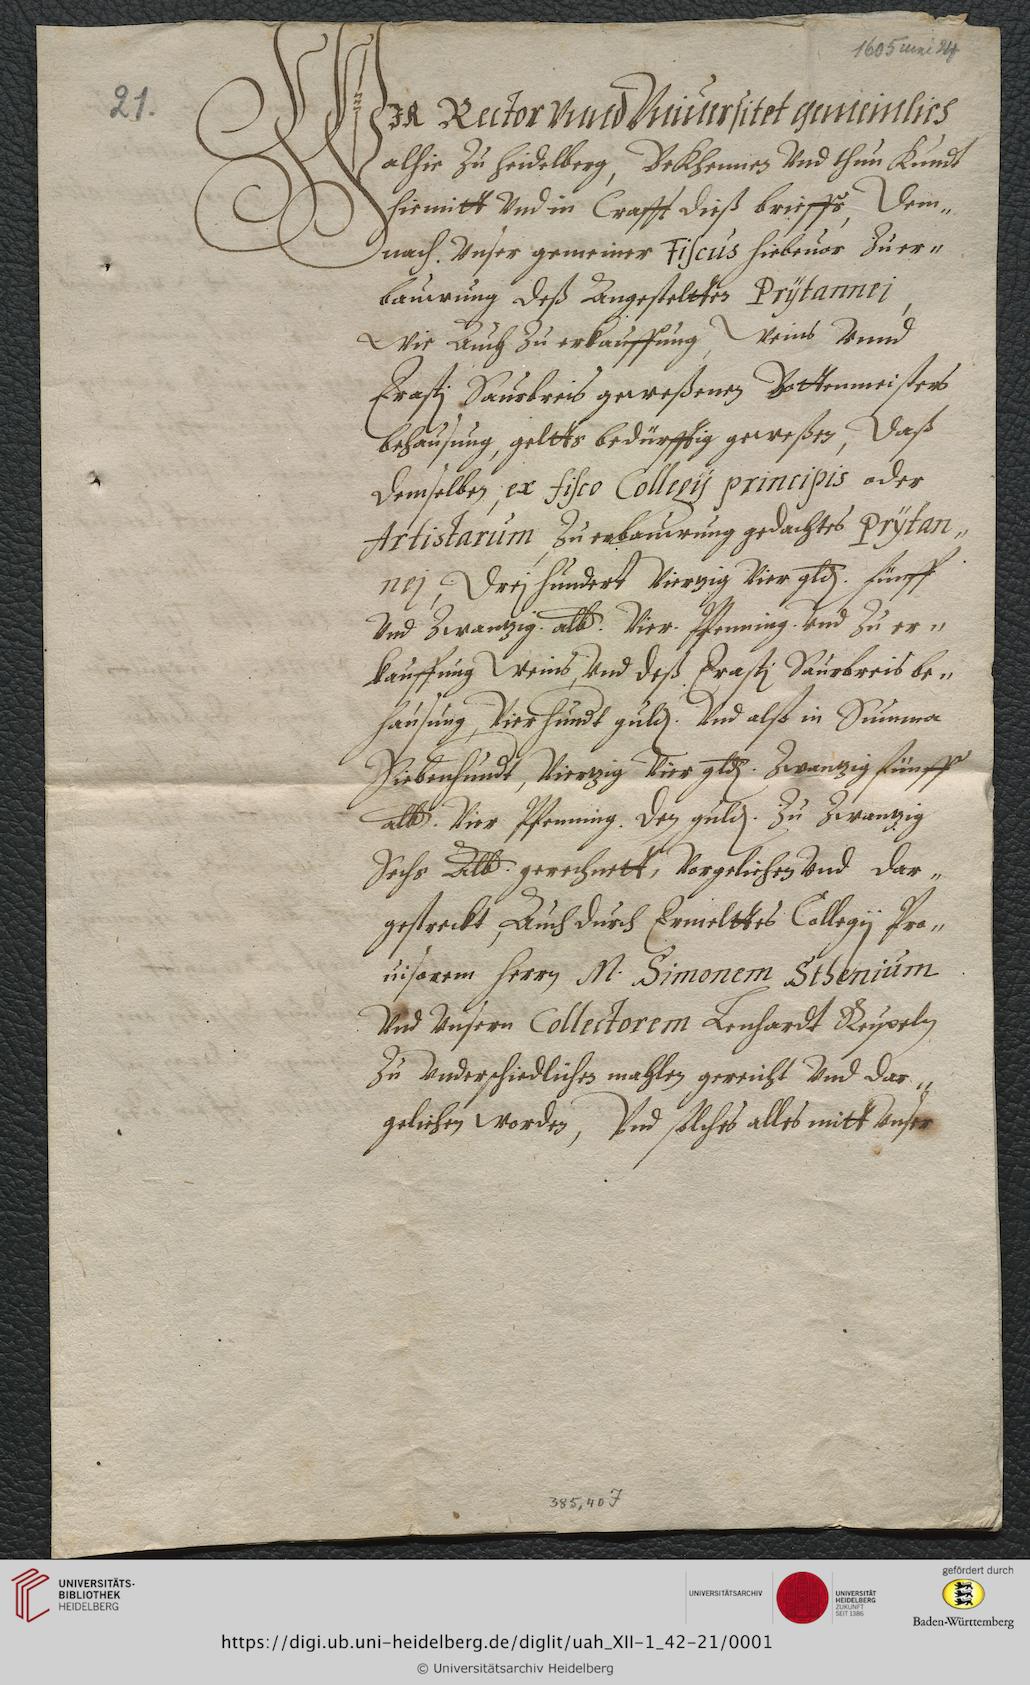 1605 Juni 24
21.
WIR Rector vnnd Vniuersitet gemeinlich
alhie zu Heidelberg, Bekhennen vnd thun kundt
hiemitt vnd in Crafft dieß brieffs, Dem„
nach vnser gemeiner Fiscus hiebeuor zu er„
bauwung deß angestelltten Prÿtannei,
wie auch zu erkauffung weins vnnd
Erasti Saurbreis geweßenen Bottenmeisters
behausung, geltts bedürfftig geweßen, Daß
demselben ex fisco Collegij principis oder
Artistarum, zu erbauwung gedachtes Prÿtan„
nej, Drej hundert Vierzig Vier gld. fünff
vnd Zwantzig alb. Vier Pfenning vnd zu er„
kauffung weins, vnd deß Erasti Saurbreis be„
hausung, Vierhundt guld. Vnd also in Summa
Siebenhundt, Viertzig Vier gld. Zwantzig fünff
alb. Vier Pfenning. Den guld. zu Zwantzig
Sechs Alb. gerechnett, vorgeliehen vnd dar„
gestreckt, Auch durch Ermeltes Collegij Pro„
uisorem Herrn M. Simonem Sthenium
vnd vnsern Collectorem Lenhardt
zu vnderschiedlichen mahlen gereicht vnd dar„
geliehen worden, Vnd solches alles mitt vnser
385,40 J
UNIVERSITÄTS-
BIBLIOTHEK
HEIDELBERG
UNIVERSITÄTSARCHIV
UNIVERSITÄT
HEIDELBERG
ZUKUNFT
SEIT 1386
gefördert durch
Baden-Württemberg
https://digi.ub.uni-heidelberg.de/diglit/uah_XII-1_42-21/0001
© Universitätsarchiv Heidelberg